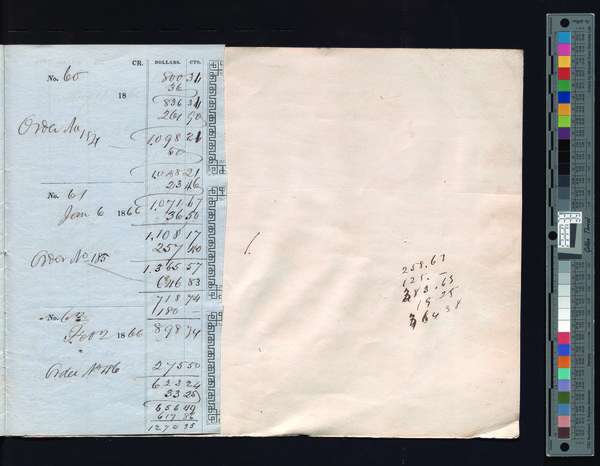 CR. DOLLARS. CTS.
No. 60 800 34
36
18 836 34
261 90
Order No 184 1.098 21
50
1.048 21
23 46
No. 61 1.071 67
Jan 6 1866 36 50
1.108 17
257 40
Order No 185 1.365 57
646 83
718 74
180
No. 62 898 74
Feb 2 1866
Order No 186 275 50
623 24
33 25
656 49
617 86
1274 35
258.67
125.-
383.63
19 25
364 38